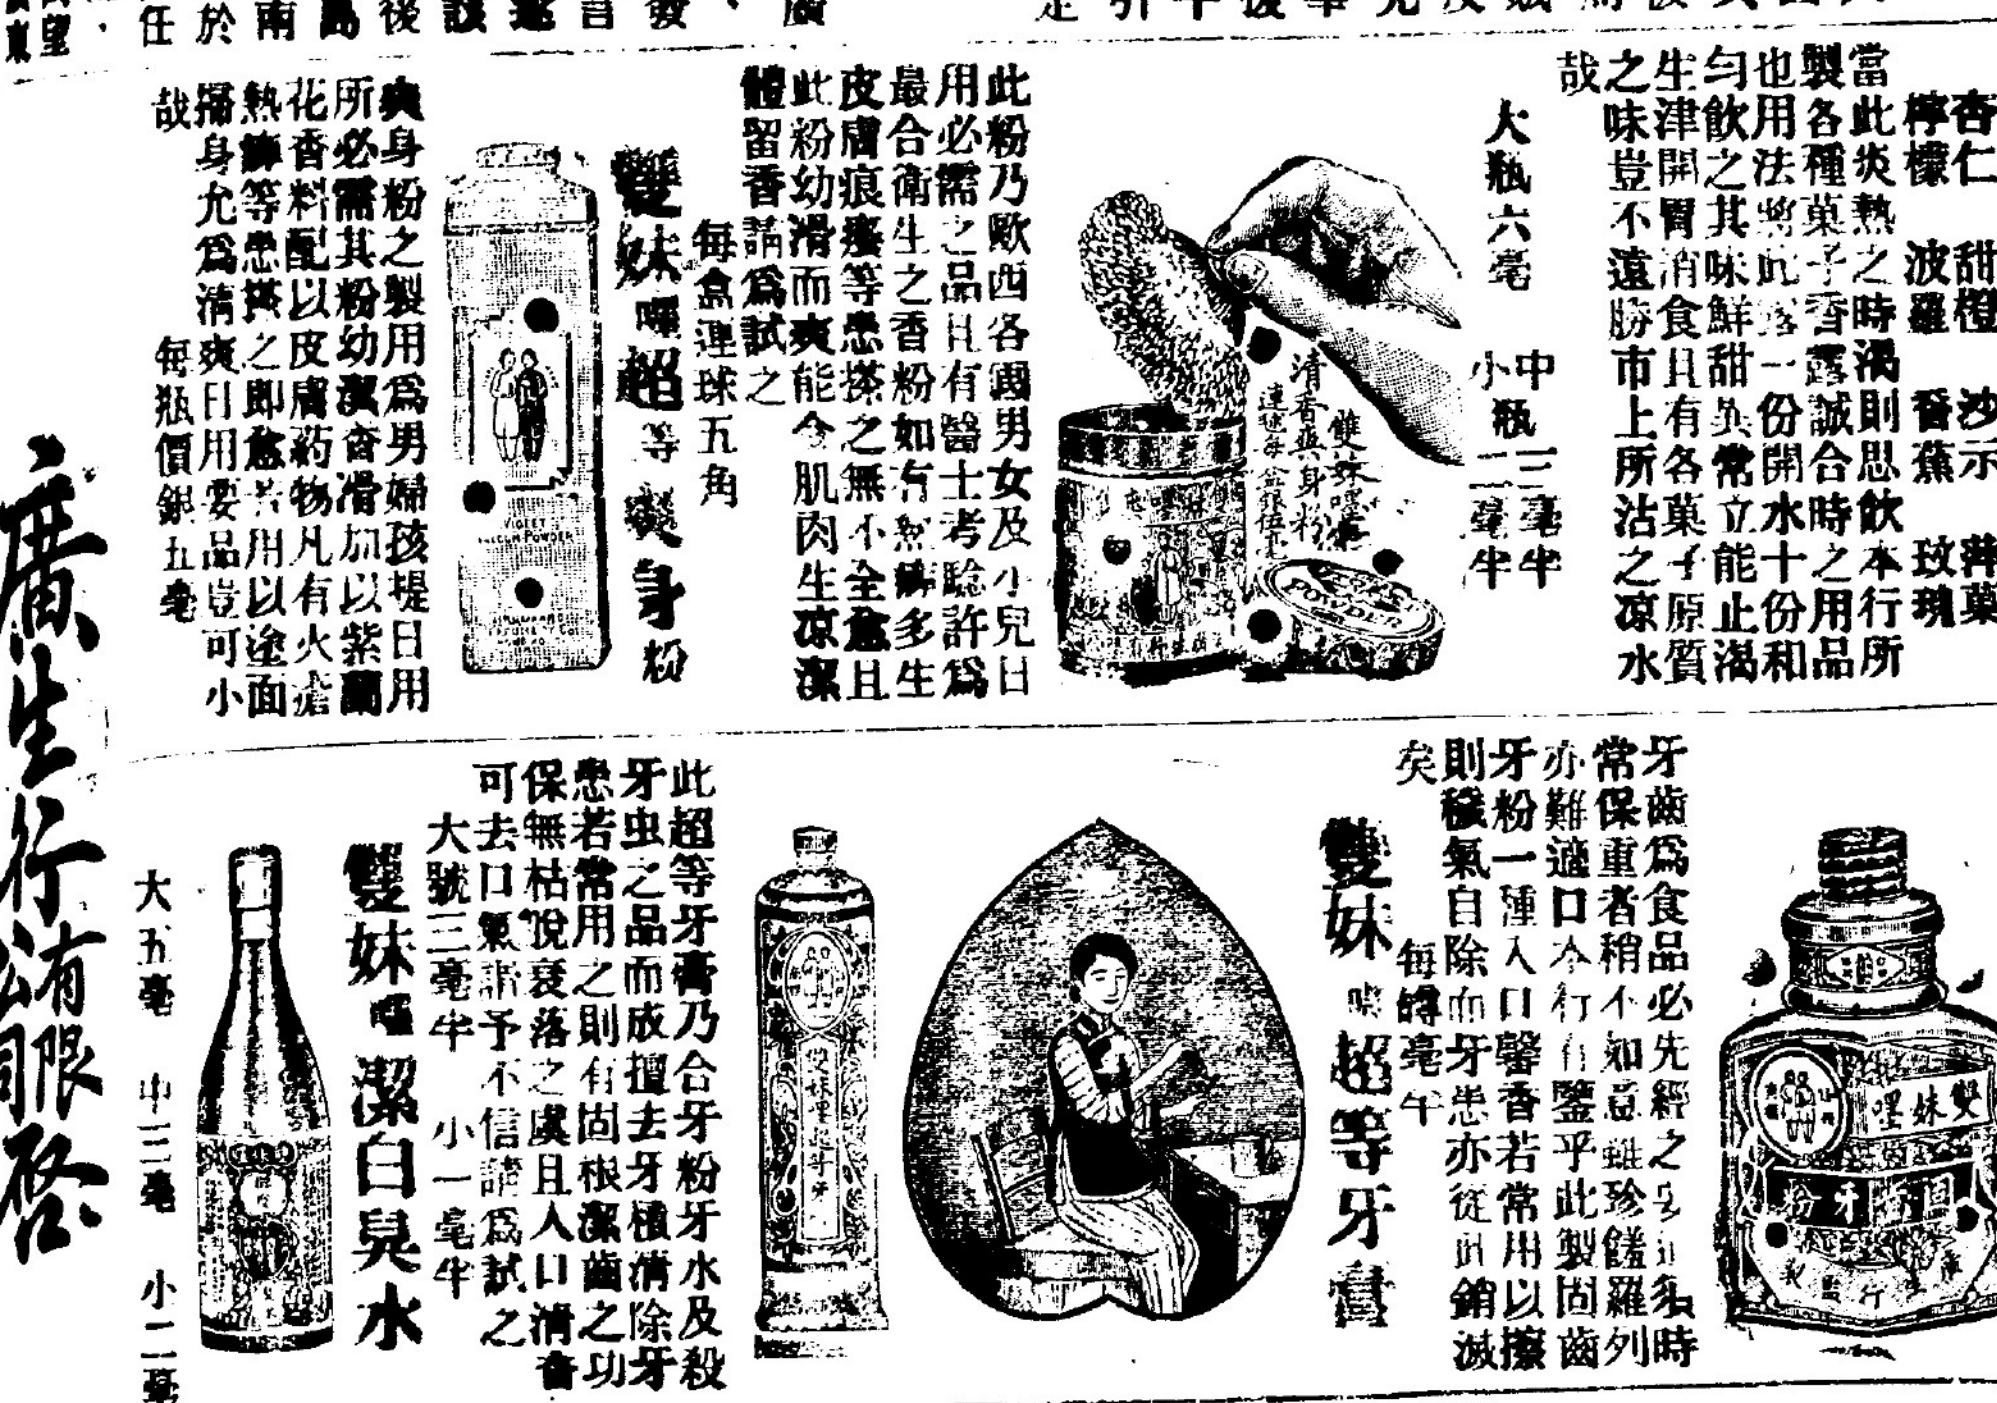 杏仁 甜橙 沙示 蘋菓
檸檬 波羅 香蕉 玫瑰
當此炎熱之時渴則思飲本行所
製各種菓子香露誠合時之用品
也用法將此露一份開水十份和
勻飲之其味鮮甜異常立能止渴
生津開胃消食且有各菓子原質
之味豈不遠勝市上所沽之凉水
哉
大瓶六毫
中瓶三毫半
小瓶二毫半
雙妹嚜
清香爽身粉
連球每盒銀伍毫
POWDER
此粉乃歐西各國男女及小兒日
用必需之品且有醫士考驗許爲
最合衛生之香粉如有熱癬多生
皮膚痕癢等患搽之無不全愈且
此粉幼滑而爽能令肌肉生凉潔
體留香請爲試之
每盒連球五角
雙妹嚜超等爽身粉
VIOLET
TALCUM POWDER
爽身粉之製用爲男婦孩提日用
所必需其粉幼潔香滑加以紫蘭
花香料配以皮膚葯物凡有火瘡
熱癬等患搽之即愈若用以塗面
搽身允爲清爽日用要品豈可小
哉
每瓶價銀五毫
雙妹嚜
牙粉
牙齒爲食品必先經之
常保重者稍不如意雖珍饈羅列
亦難適口本行有鑒乎此製固齒
牙粉一種入口馨香若常用以擦
則穢氣自除而牙患亦從此銷滅
矣
每罇毫半
雙妹嚜超等牙膏
此超等牙膏乃合牙粉牙水及殺
牙虫之品而成擅去牙積清除牙
患若常用之則有固根潔齒之功
保無枯悅衰落之虞且入口清香
可去口氣請予不信請爲試之
大號三毫半 小一毫半
雙妹嚜潔白臭水
大五毫 中三毫 小二毫
廣生行有限公司啓